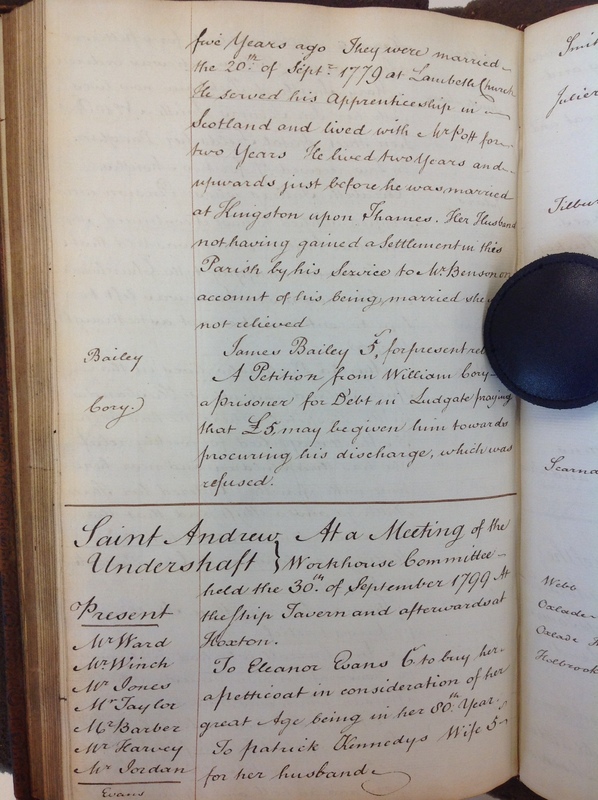 five Years ago They were married
the 20th of Septr 1779 at Lambeth Church
He served his Apprenticeship in
Scotland and lived with Mr Pott for
two Years He lived two Years and
upwards just before he was married
at Kingston upon Thames. Her Husband
not having gained a Settlement in this
Parish by his Service to Mr Benson on
account of his being married she
not relieved
Bailey James Bailey 5/ for present
A Petition from William Cory
Cory. a prisoner for Debt in Ludgate praying
that £5, may be given him towards
procuring his discharge, which was
refused.
Saint Andrew Undershaft } At a Meeting of the
Workhouse Committee
held the 30th of September 1799 At
the Ship Tavern and afterwards at
Hoxton.
Present
Mr Ward
Mr Winch
Mr Jones
Mr Taylor
Mr Barber
Mr Harvey
Mr Jordan
Evans
To Eleanor Evans 6/ to buy her
a petticoat in consideration of her
great Age being in her 80th Year.
To Patrick Kennedys Wife 5/
for her husband
Tilbur
Webb
Oxlade
Oxlade
Holbrook